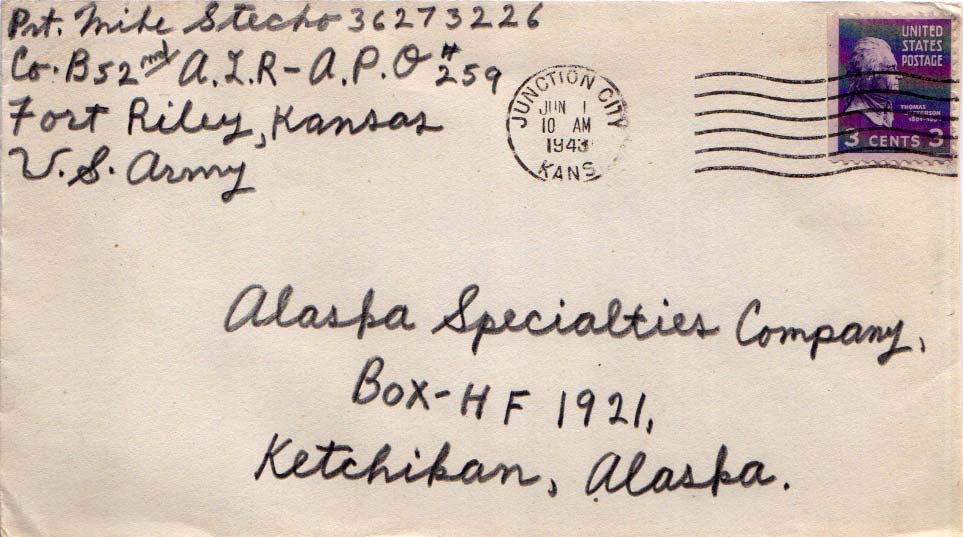 Pvt. Mike Stecho 36273226
Co. B 52nd A.I.R - A.P.O #259
Fort Riley, Kansas
U.S. Army
JUNCTION CITY
JUN 1
10 AM
1943
KANS
UNITED
STATES
POSTAGE
THOMAS
JEFFERSON
3 CENTS 3
Alaska Specialties Company,
Box-HF 1921,
Ketchikan, Alaska.